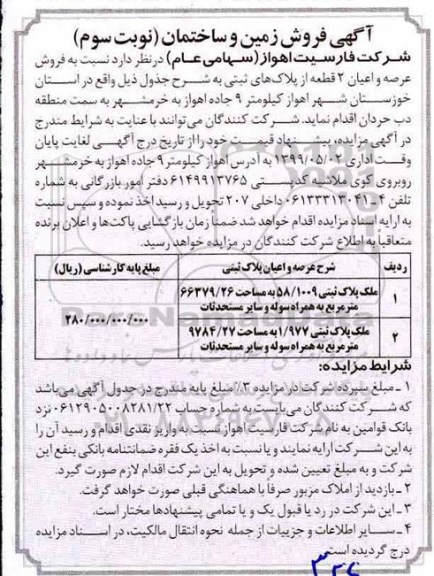 آگهی فروش زمین و ساختمان (نوبت سوم)
شرکت فارسیت اهواز (سهامی عام) در نظر دارد نسبت به فروش
عرصه و اعیان ۲ قطعه از پلاک‌های ثبتی به شرح جدول ذیل واقع در استان
خوزستان شهر اهواز کیلومتر ۹ جاده اهواز به خرمشهر به سمت منطقه
دب حردان اقدام نماید. شرکت کنندگان می‌توانند با عنایت به شرایط مندرج
در آگهی مزایده، پیشنهاد قیمت خود را از تاریخ درج آگهی لغایت پایان
وقت اداری ۱۳۹۹/۰۵/۰۲ به آدرس اهواز کیلومتر ۹ جاده اهواز به خرمشهر
روبروی کوی ملاشیه کدپستی ۶۱۴۹۹۱۳۷۶۵ دفتر امور بازرگانی به شماره
تلفن ۴-۰۶۱۳۳۳۱۳۰۴۱ داخلی ۲۰۷ تحویل و رسید اخذ نموده و سپس نسبت
به ارایه اسناد مزایده اقدام خواهد شد ضمناً زمان بازگشایی پاکت‌ها و اعلان برنده
متعاقباً به اطلاع شرکت کنندگان در مزایده خواهد رسید.
ردیف شرح عرصه و اعیان پلاک ثبتی مبلغ پایه کارشناسی (ریال)
۱ ملک پلاک ثبتی ۵۸/۱۰۰۹ به مساحت ۶۶۳۷۹/۲۶
متر مربع به همراه سوله و سایر مستحدثات
۲۸۰/۰۰۰/۰۰۰/۰۰۰
۲ ملک پلاک ثبتی ۱/۹۷۷ به مساحت ۹۷۸۴/۲۷
متر مربع به همراه سوله و سایر مستحدثات
شرایط مزایده:
۱ـ مبلغ سپرده شرکت در مزایده ۳٪ مبلغ پایه مندرج در جدول آگهی می‌باشد
که شرکت کنندگان می‌بایست به شماره حساب ۰۶۱۲۹۰۵۰۰۸۲۸۱/۲۲ نزد
بانک قوامین به نام شرکت فارسیت اهواز نسبت به واریز نقدی اقدام و رسید آن را
به این شرکت ارایه نمایند و یا نسبت به اخذ یک فقره ضمانتنامه بانکی بنفع این
شرکت و به مبلغ تعیین شده و تحویل به این شرکت اقدام لازم صورت گیرد.
۲ـ بازدید از املاک مزبور صرفاً با هماهنگی قبلی صورت خواهد گرفت.
۳ـ این شرکت در رد یا قبول یک و یا تمامی پیشنهادها مختار است.
۴ـ سایر اطلاعات و جزییات از جمله نحوه انتقال مالکیت، در اسناد مزایده
درج گردیده است.